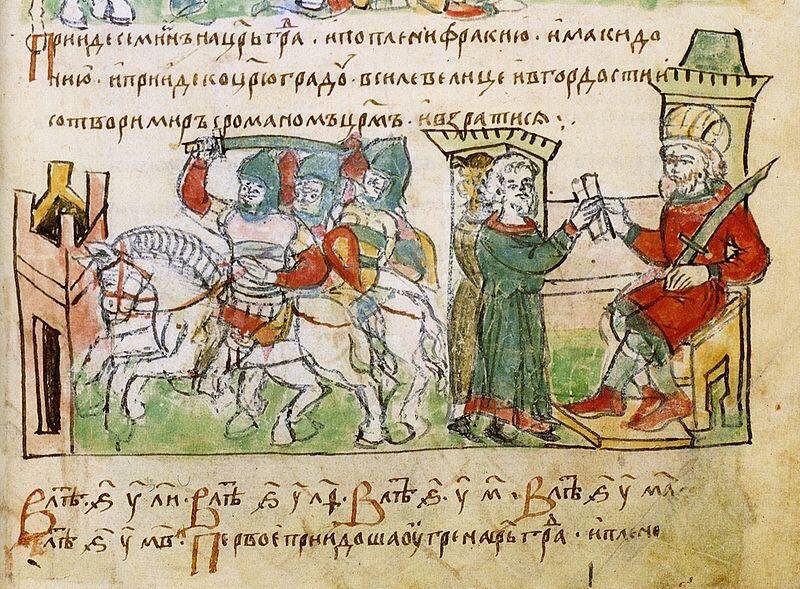 Прииде семиѡ҃нъ на цр҃ьгра . и поплени фракию . и маки до
нию . и прииде ко цр҃юградꙋ . в силе велице и в гордости и
сотвори миръ с романомъ цр҃мъ . и взратися :
В лѣт҃ . ҂ѕ҃ . у . л҃и . В лѣт҃ . ҂ѕ҃ у л҃ѳ . В лѣт҃ . ҂ѕ҃ . у . м҃ . В лѣт҃ ҂ѕ҃ у м҃а .
В лѣт҃ . ҂ѕ҃ у м҃в . Первое приидоша ѹгре на цр҃ьград . и плене